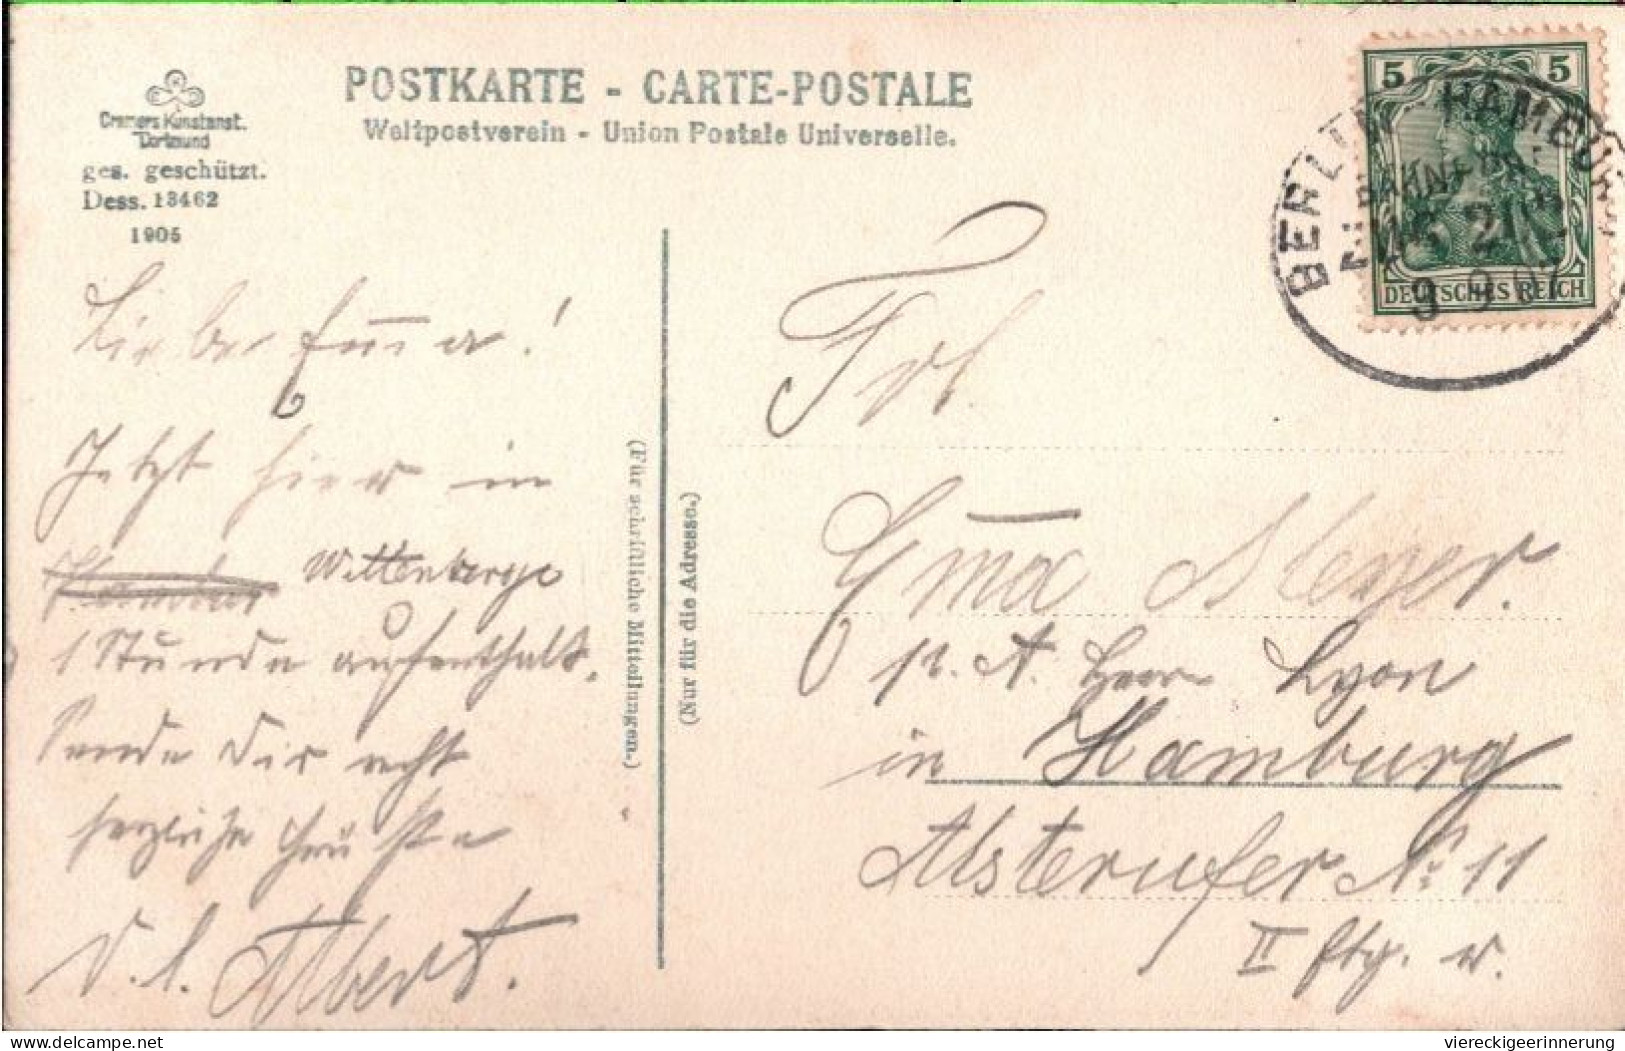 POSTKARTE - CARTE-POSTALE
Weltpostverein - Union Postale Universelle.
Cramers Kunstanst.
Dortmund
ges. geschützt.
Dess. 13462
1905
5 5
DEUTSCHES REICH
BERLIN HAMBUR
BAHNPOST
9 9 07
Liebe Emma!
Jetzt hier in
Wittenberge
1 Stunde aufenthalt.
Sende Dir recht
herzliche Grüße
D. l. Albert.
(Für schriftliche Mitteilungen.)
(Nur für die Adresse.)
Frl.
Ema Meyer.
p. A. Herr Lyon
in Hamburg
Alsterufer No 11
II Etg. r.
www.delcampe.net
viereckigeerinnerung